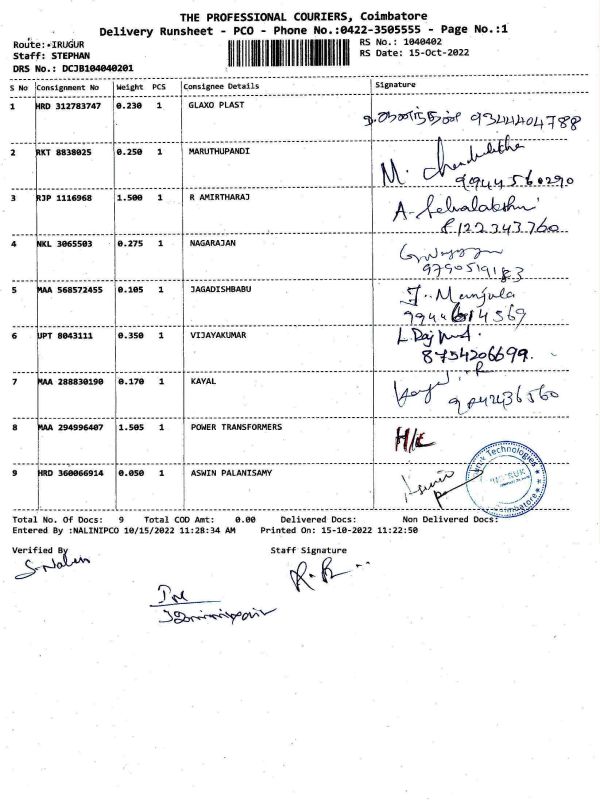 THE PROFESSIONAL COURIERS, Coimbatore
Delivery Runsheet - PCO - Phone No.:0422-3505555 - Page No.:1
Route: IRUGUR
RS No.: 1040402
Staff: STEPHAN
RS Date: 15-Oct-2022
DRS No.: DCJB104040201
S No Consignment No Weight PCS Consignee Details Signature
1 HRD 312783747 0.230 1 GLAXO PLAST 9344404788
2 RKT 8838025 0.250 1 MARUTHUPANDI M.
9944560290
3 RJP 1116968 1.500 1 R AMIRTHARAJ A-Selvalakshmi
8122343760
4 NKL 3065503 0.275 1 NAGARAJAN
9790519183
5 MAA 568572455 0.105 1 JAGADISHBABU J. Manjula
9944614569
6 UPT 8043111 0.350 1 VIJAYAKUMAR
8754206699.
7 MAA 288830190 0.170 1 KAYAL
9042436560
8 MAA 294996407 1.505 1 POWER TRANSFORMERS H/C
9 HRD 360066914 0.050 1 ASWIN PALANISAMY Aswin
Technologies
Coimbatore
Total No. Of Docs: 9 Total COD Amt: 0.00 Delivered Docs: Non Delivered Docs:
Entered By :NALINIPCO 10/15/2022 11:28:34 AM Printed On: 15-10-2022 11:22:50
Verified By Staff Signature
S-Nalin